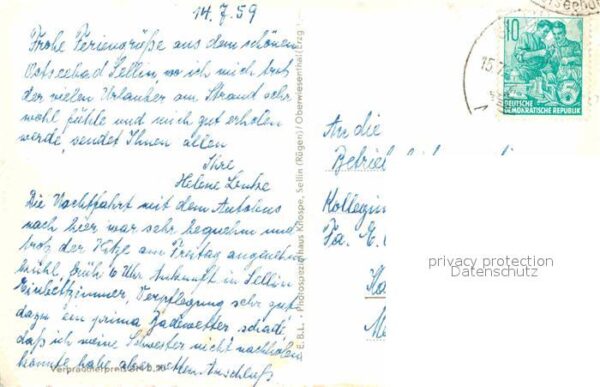 14.7.59
Frohe Feriengrüße aus dem schönen
Ostseebad Sellin, wo ich mich trotz
der vielen Urlauber am Strand sehr
wohl fühle und mich gut erholen
werde, sendet Ihnen allen
Ihre
Helene
Die Nachtfahrt mit dem Autobus
nach hier war sehr bequem und
trotz der Hitze am Freitag angenehm
kühl, früh 6 Uhr Ankunft in Sellin
Einbettzimmer, Verpflegung sehr gut
dazu ein prima Badewetter, schade
daß ich meine Schwester nicht nachholen
konnte habe aber netten Anschluß
Verbraucherpreis
E.B.L. Photospezialhaus Knospe, Sellin (Rügen)/Oberwiesenthal (Erzg
10
DEUTSCHE
DEMOKRATISCHE REPUBLIK
15.7
An die
Kollegin
Fa. E.
privacy protection
Datenschutz